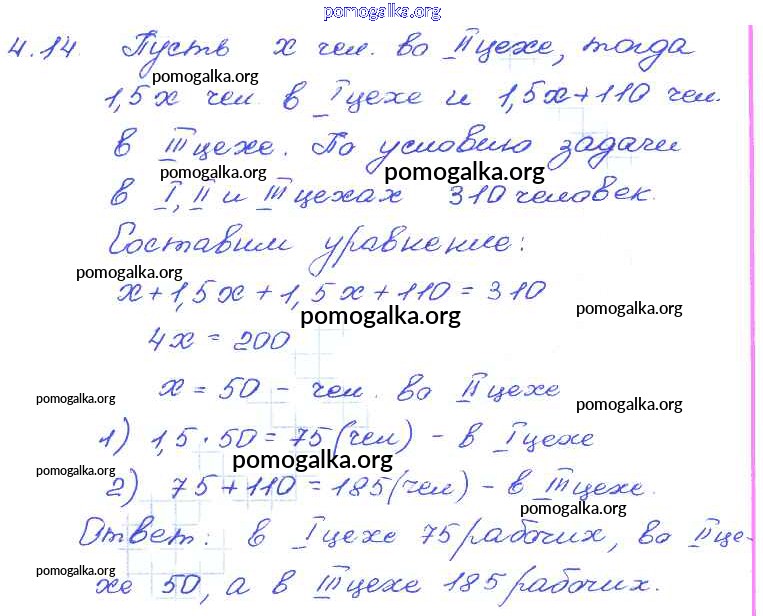 pomogalka.org
4.14. Пусть x чел. во II цехе, тогда
pomogalka.org
1,5x чел. в I цехе и 1,5x+110 чел.
в III цехе. По условию задачи
pomogalka.org pomogalka.org
в I, II и III цехах 310 человек.
Составим уравнение:
pomogalka.org
x+1,5x+1,5x+110=310
pomogalka.org pomogalka.org
4x=200
x=50 - чел. во II цехе
pomogalka.org pomogalka.org
1) 1,5·50=75(чел) - в I цехе
pomogalka.org pomogalka.org
2) 75+110=185(чел) - в III цехе.
pomogalka.org
Ответ: в I цехе 75 рабочих, во II це-
pomogalka.org
хе 50, а в III цехе 185 рабочих.